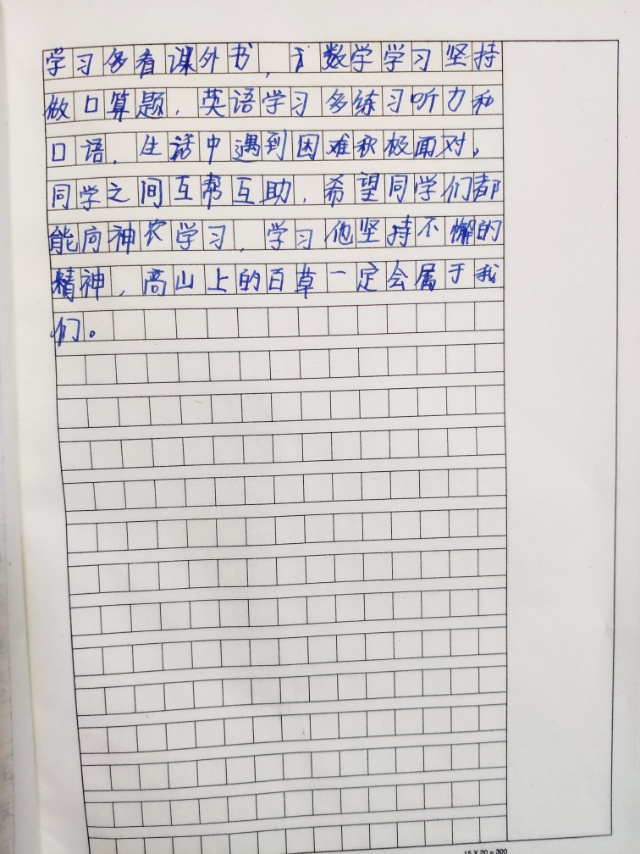 学习多看课外书，数学学习坚持
做口算题，英语学习多练习听力和
口语，生活中遇到困难积极面对，
同学之间互帮互助，希望同学们都
能向神农学习，学习他坚持不懈的
精神，高山上的百草一定会属于我
们。
15×20=300